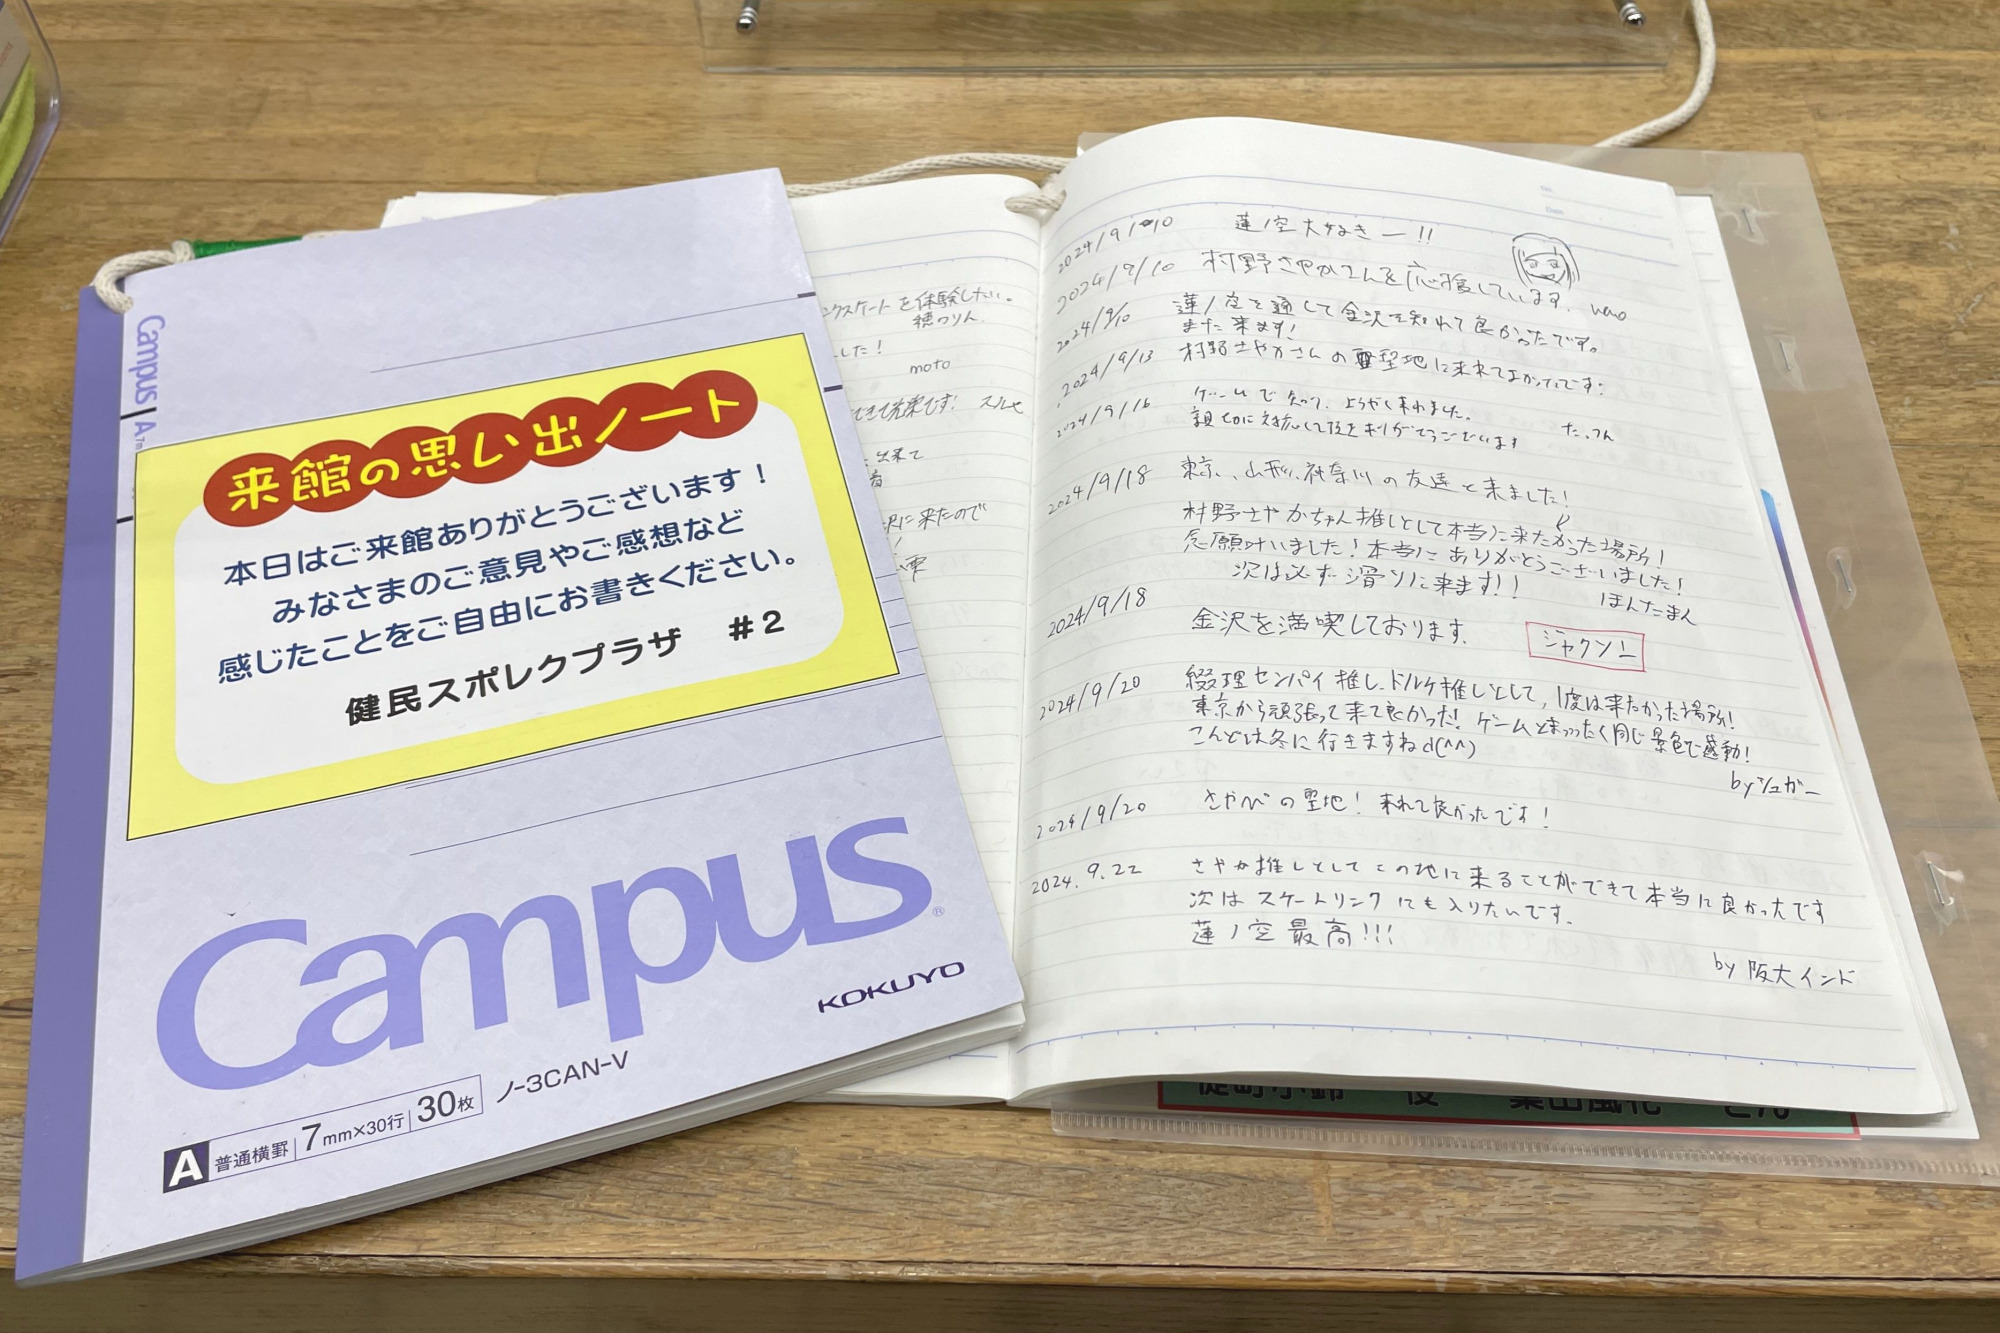 Campus A
来館の思い出ノート
本日はご来館ありがとうございます！
みなさまのご意見やご感想など
感じたことをご自由にお書きください。
健民スポレクプラザ #2
Campus
KOKUYO
A 普通横罫 7mm×30行 30枚 ノ-3CAN-V
スケートを体験したい。
穂つりん
した！
moto
できて光栄です！
出来て
に来たので
2024/9/10 蓮ノ空大好きー!!
2024/9/10 村野さやかさんを応援しています。
2024/9/10 蓮ノ空を通して金沢を知れて良かったです。
また来ます！
2024/9/13 村野さやかさんの聖地に来れてよかったです!
2024/9/16 ゲームで知って、ようやく来れました。
親切に対応して頂きありがとうございます
2024/9/18 東京、山形、神奈川の友達と来ました！
村野さやかちゃん推しとして本当に来たかった場所！
念願叶いました！本当にありがとうございました！
次は必ず滑りに来ます！！
ほんたまん
2024/9/18 金沢を満喫しております。
2024/9/20 綴理センパイ推し、ドルケ推しとして、1度は来たかった場所！
東京から頑張って来て良かった！ゲームとまっったく同じ景色で感動！
こんどは冬に行きますねd(^^)
byシュガー
2024/9/20 さやかの聖地！来れて良かったです！
2024.9.22 さやか推しとしてこの地に来ることができて本当に良かったです
次はスケートリンクにも入りたいです。
蓮ノ空最高!!!
by 阪大インド